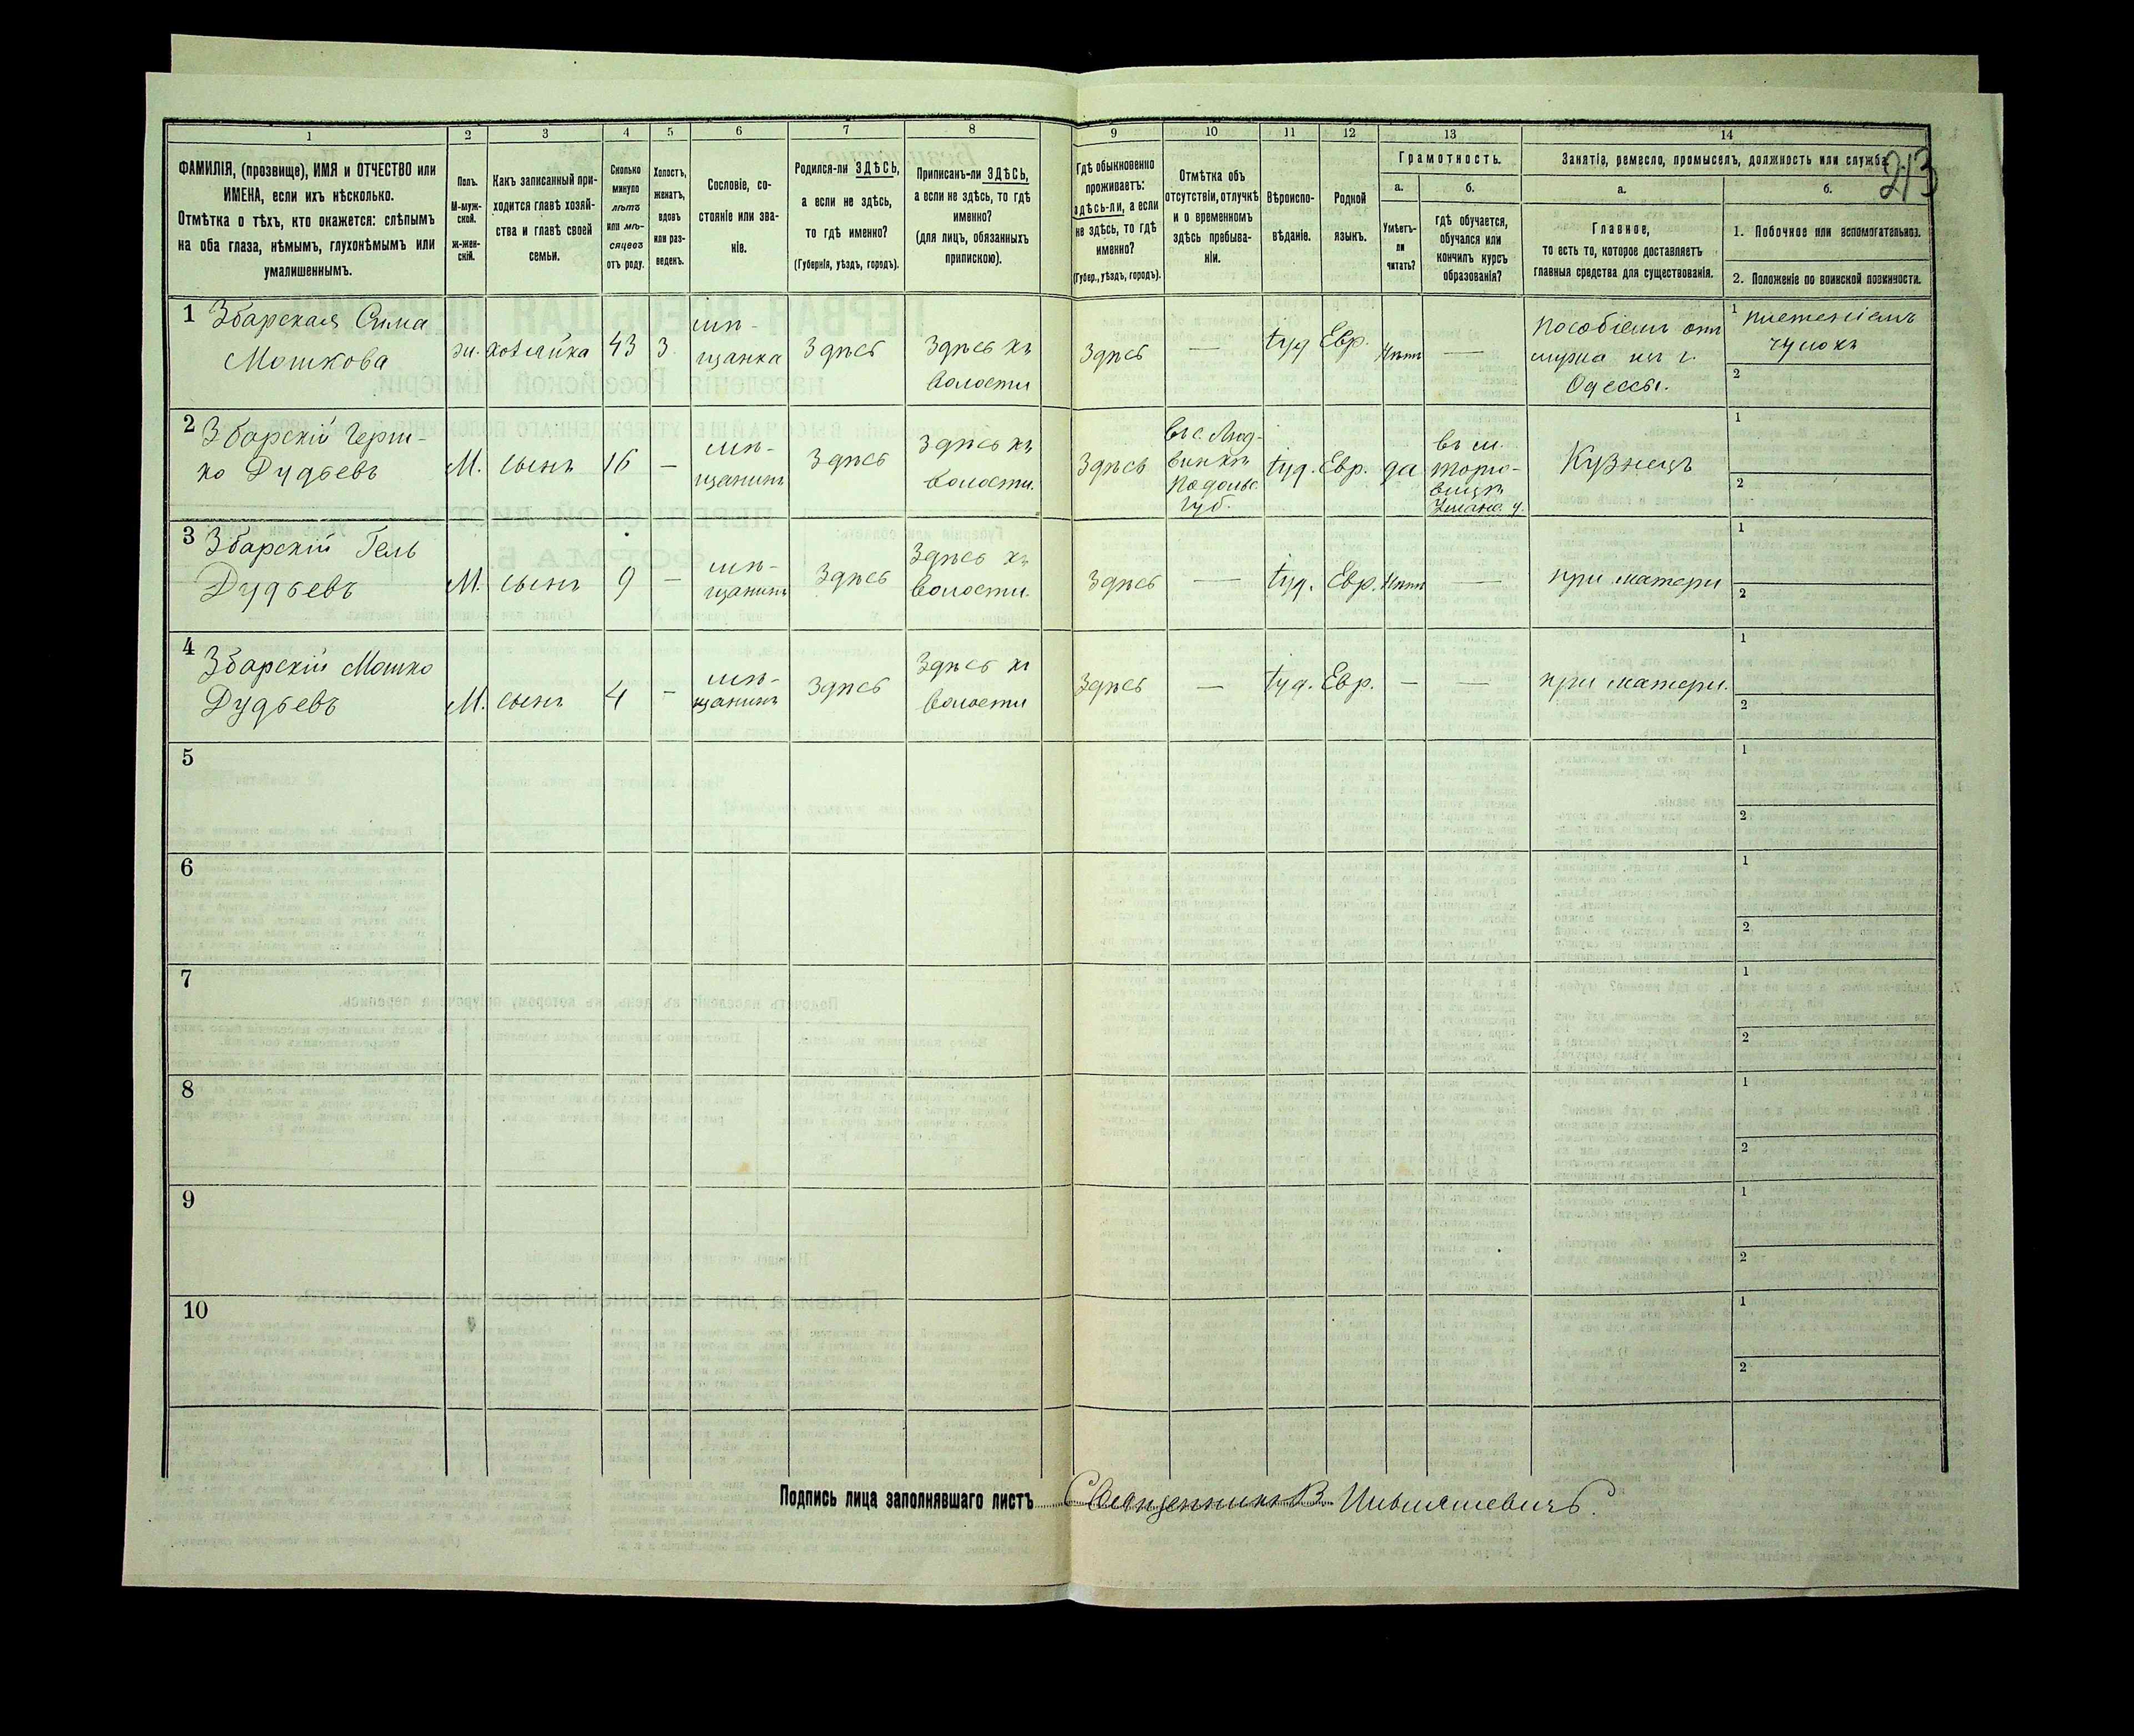 213
1
2
3
4
5
6
7
8
9
10
11
12
13
14
ФАМИЛІЯ, (прозвище), ИМЯ и ОТЧЕСТВО или
ИМЕНА, если ихъ нѣсколько.
Отмѣтка о тѣхъ, кто окажется: слѣпымъ
на оба глаза, нѣмымъ, глухонѣмымъ или
умалишеннымъ.
Полъ.
М-муж-
ской.
ж-жен-
скій.
Какъ записанный при-
ходится главѣ хозяй-
ства и главѣ своей
семьи.
Сколько
минуло
лѣтъ
или мѣ-
сяцевъ
отъ роду.
Холостъ,
женатъ,
вдовъ
или раз-
веденъ.
Сословіе, со-
стояніе или зва-
ніе.
Родился-ли ЗДѢСЬ,
а если не здѣсь,
то гдѣ именно?
(Губернія, уѣздъ, городъ).
Приписанъ-ли ЗДѢСЬ,
а если не здѣсь, то гдѣ
именно?
(для лицъ, обязанныхъ
припискою).
Гдѣ обыкновенно
проживаетъ:
здѣсь-ли, а если
не здѣсь, то гдѣ
именно?
(Губер., уѣздъ, городъ).
Отмѣтка объ
отсутствіи, отлучкѣ
и о временномъ
здѣсь пребыва-
ніи.
Вѣроиспо-
вѣданіе.
Родной
языкъ.
Грамотность.
а.
б.
Умѣетъ-
ли
читать?
гдѣ обучается,
обучался или
кончилъ курсъ
образованія?
Занятіе, ремесло, промыселъ, должность или служба.
а.
б.
Главное,
то есть то, которое доставляетъ
главныя средства для существованія.
1. Побочное или вспомогательное.
2. Положеніе по воинской повинности.
1 Збарская Сима
Мошкова
жи. хозяйка 43 з. мѣ-
щанка Здѣсь Здѣсь къ
волости
Здѣсь — іуд Евр. Нѣтъ —
пособіемъ отъ
мужа изъ г.
Одессы.
1 плетеніемъ
чулокъ
2
2 Збарскій Герш-
ко Дудьевъ
М. сынъ 16 — мѣ-
щанинъ Здѣсь Здѣсь къ
волости.
Здѣсь
въ с.
Подольс.
Губ.
іуд. Евр. да
въ м.
Торго-
вицѣ
у.
Кузнецъ
1
2
3 Збарскій Гель
Дудьевъ
М. сынъ 9 — мѣ-
щанинъ Здѣсь Здѣсь къ
волости.
Здѣсь — іуд. Евр. Нѣтъ — при матери
1
2
4 Збарскій Мошко
Дудьевъ
М. сынъ 4 — мѣ-
щанинъ Здѣсь Здѣсь къ
волости
Здѣсь — іуд. Евр. — — при матери.
1
2
5
1
2
6
1
2
7
1
2
8
1
2
9
1
2
10
1
2
Подпись лица заполнявшаго листъ Священникъ В.